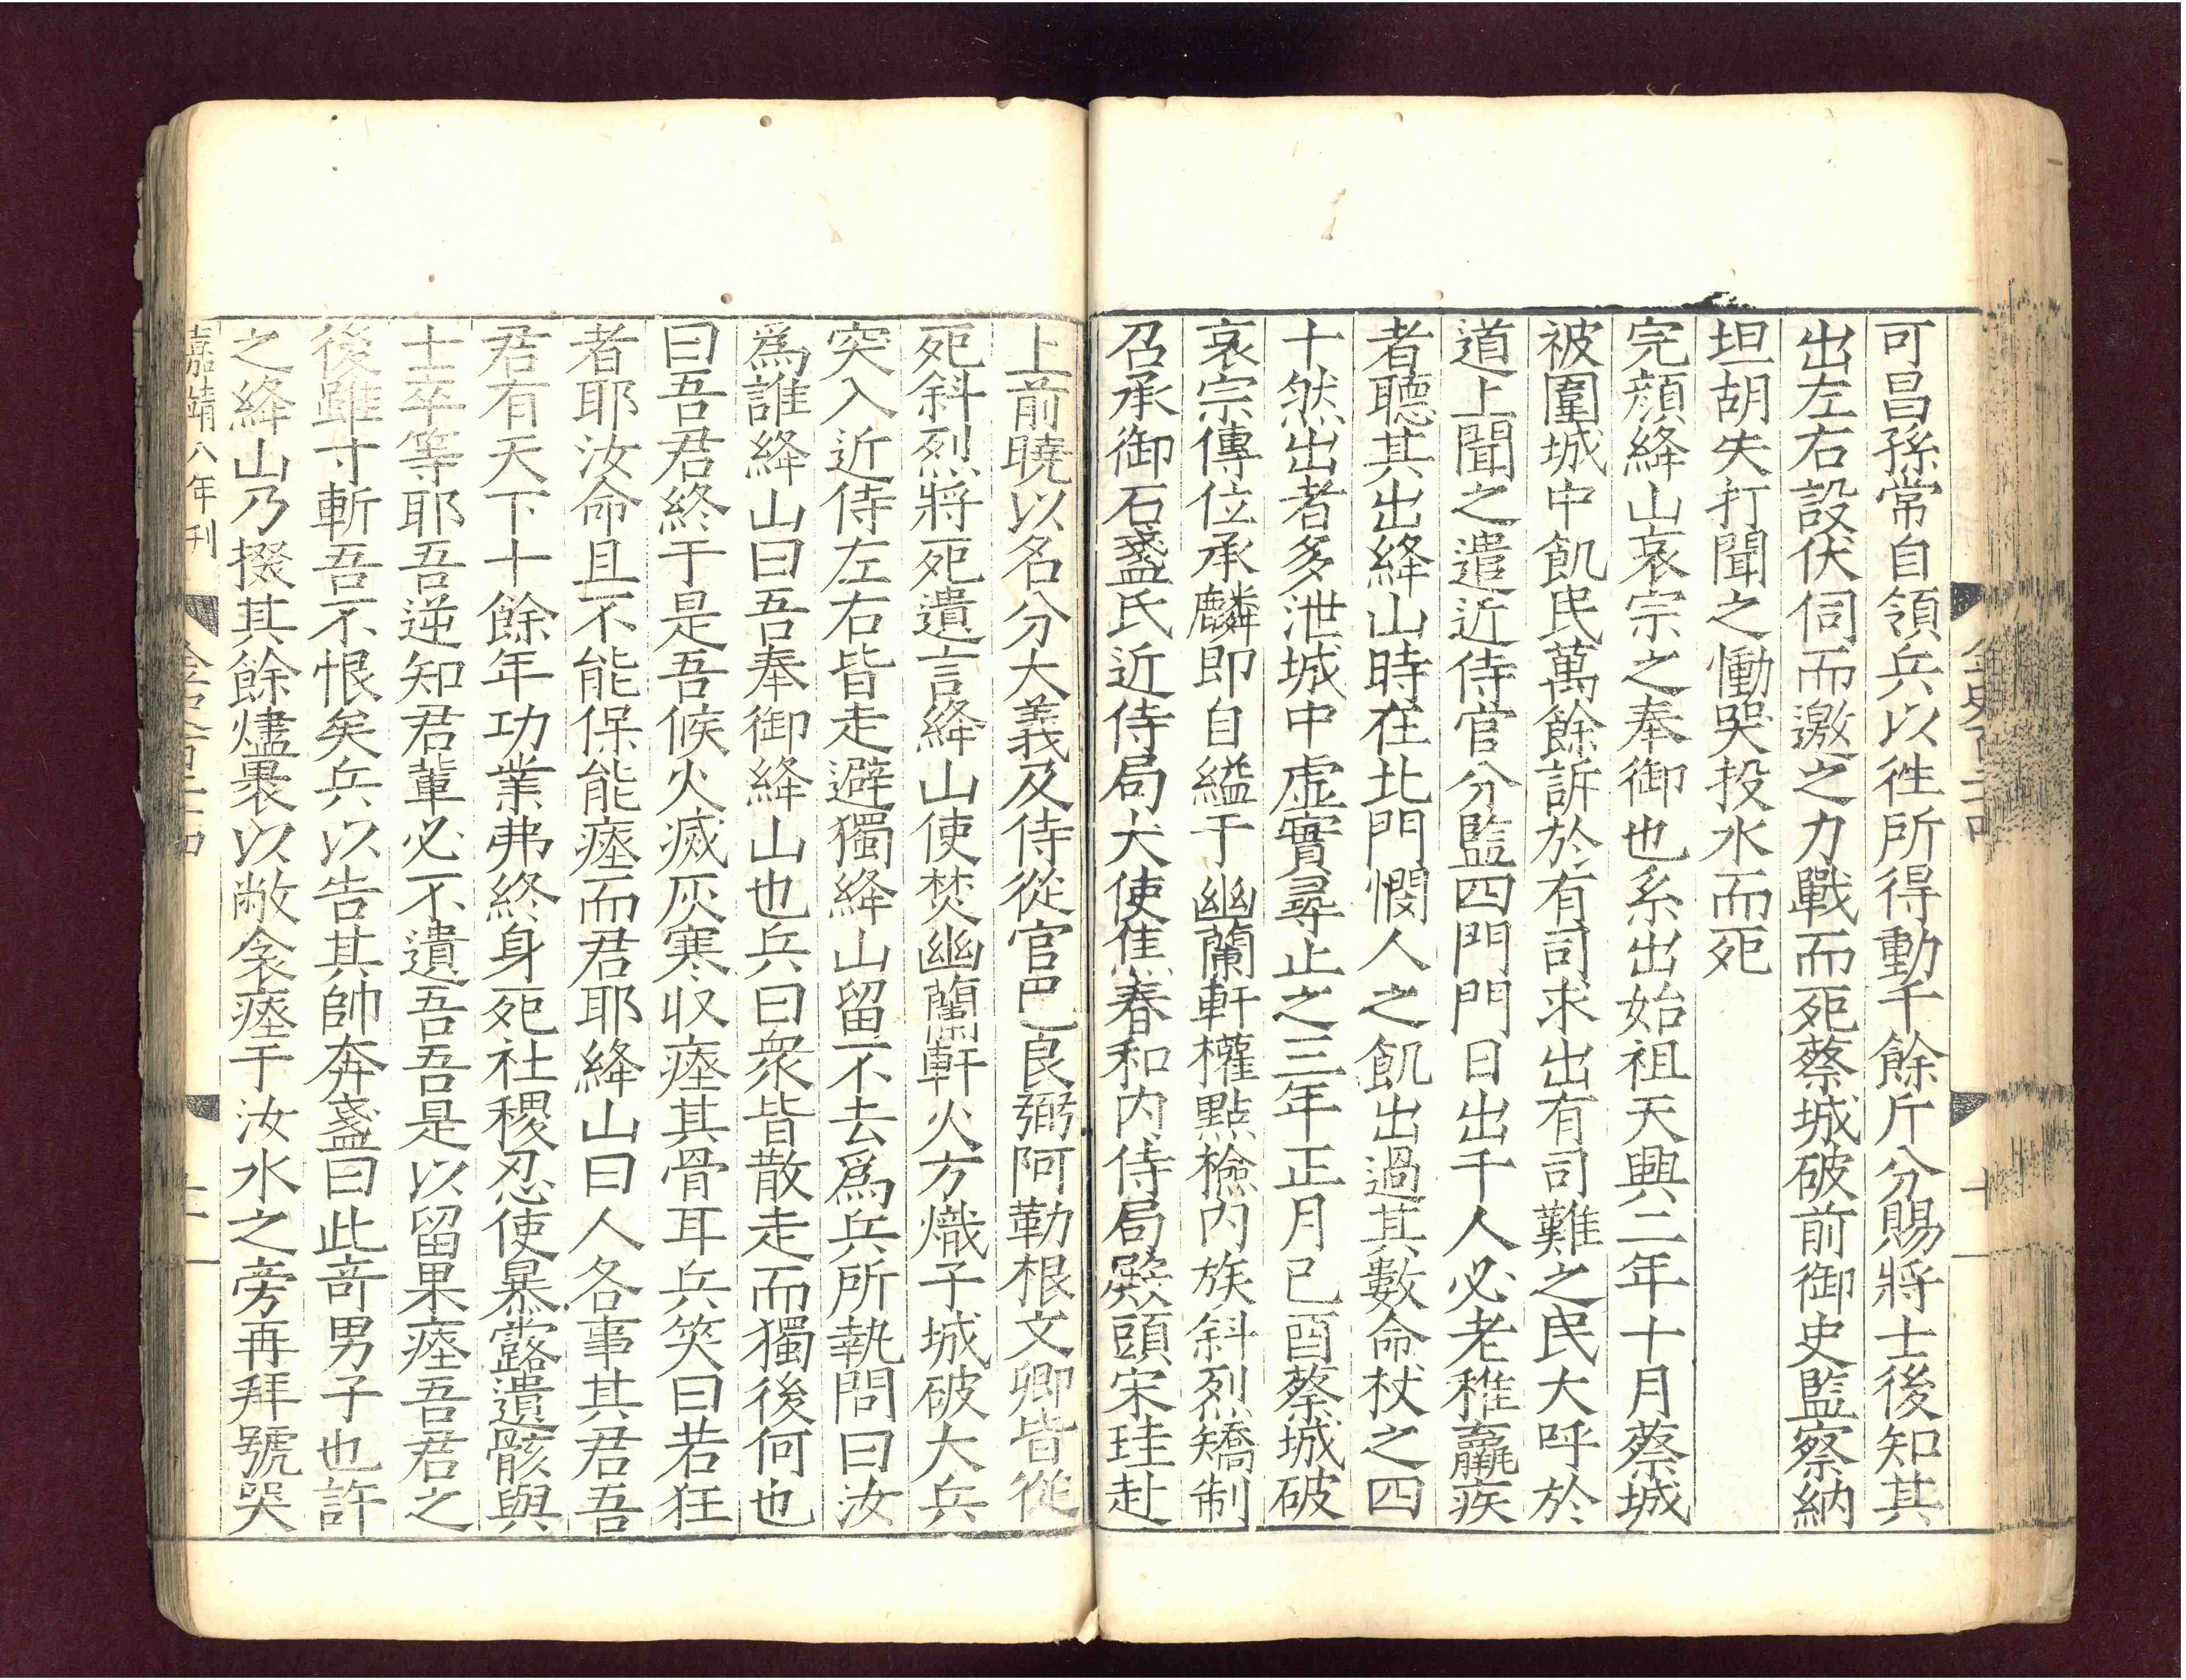 可昌孫常自領兵以徃所得動千餘斤分賜將士後知其
出左右設伏伺而邀之力戰而死蔡城破前御史監察納
坦胡失打聞之慟哭投水而死
完顔絳山哀宗之奉御也系出始祖天興二年十月蔡城
被圍城中飢民萬餘訴於有司求出有司難之民大呼於
道上聞之遣近侍官分監四門門日出千人必老稚羸疾
者聽其出絳山時在北門憫人之飢出過其數命杖之四
十然出者多泄城中虛實尋止之三年正月己酉蔡城破
哀宗傳位承麟即自縊于幽蘭軒權點檢内族斜烈矯制
召承御石盞氏近侍局大使焦春和内侍局殿頭宋珪赴
上前曉以名分大義及侍從官巴良弼阿勒根文卿皆從
死斜烈將死遺言絳山使焚幽蘭軒火方熾子城破大兵
突入近侍左右皆走避獨絳山留不去爲兵所執問曰汝
爲誰絳山曰吾奉御絳山也兵曰衆皆散走而獨後何也
曰吾君終于是吾候火滅灰寒収瘞其骨耳兵笑曰若狂
者耶汝命且不能保能瘞而君耶絳山曰人各事其君吾
君有天下十餘年功業弗終身死社稷忍使暴露遺骸與
士卒等耶吾逆知君輩必不遺吾吾是以留果瘞吾君之
後雖寸斬吾不恨矣兵以告其帥奔盞曰此奇男子也許
之絳山乃掇其餘燼裹以敝衾瘞于汝水之旁再拜號哭
嘉靖八年刊